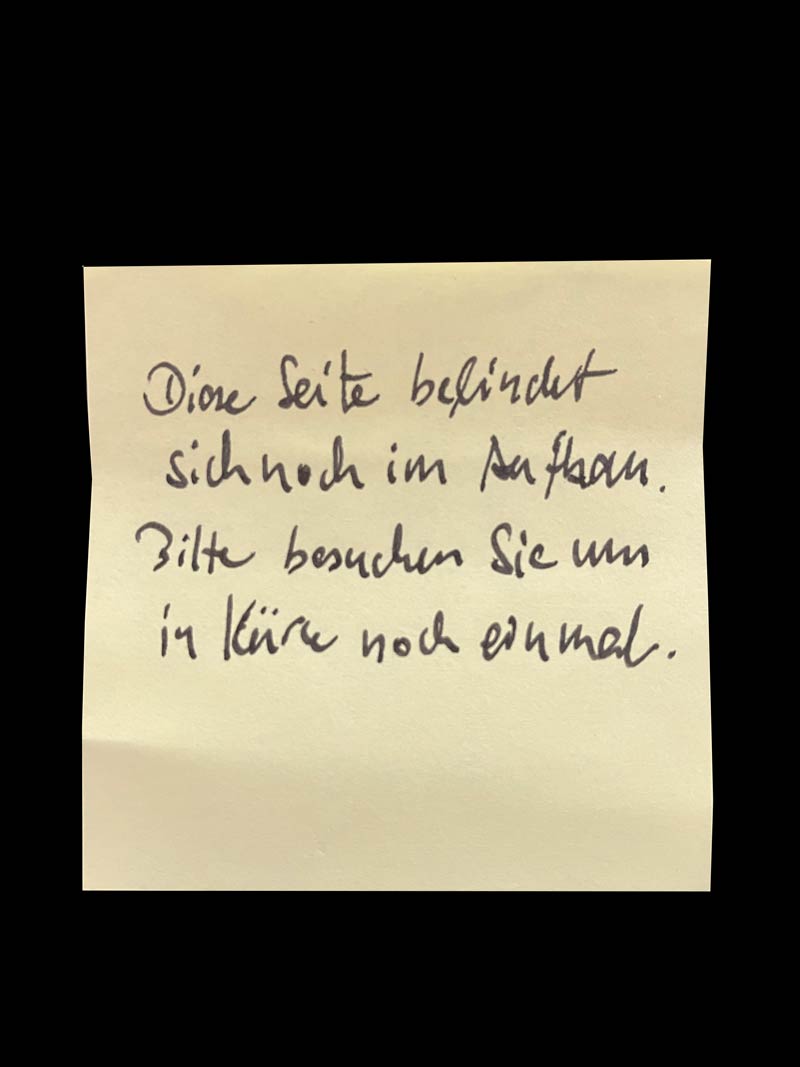 Diese Seite befindet
sich noch im Aufbau.
Bitte besuchen Sie uns
in Kürze noch einmal.